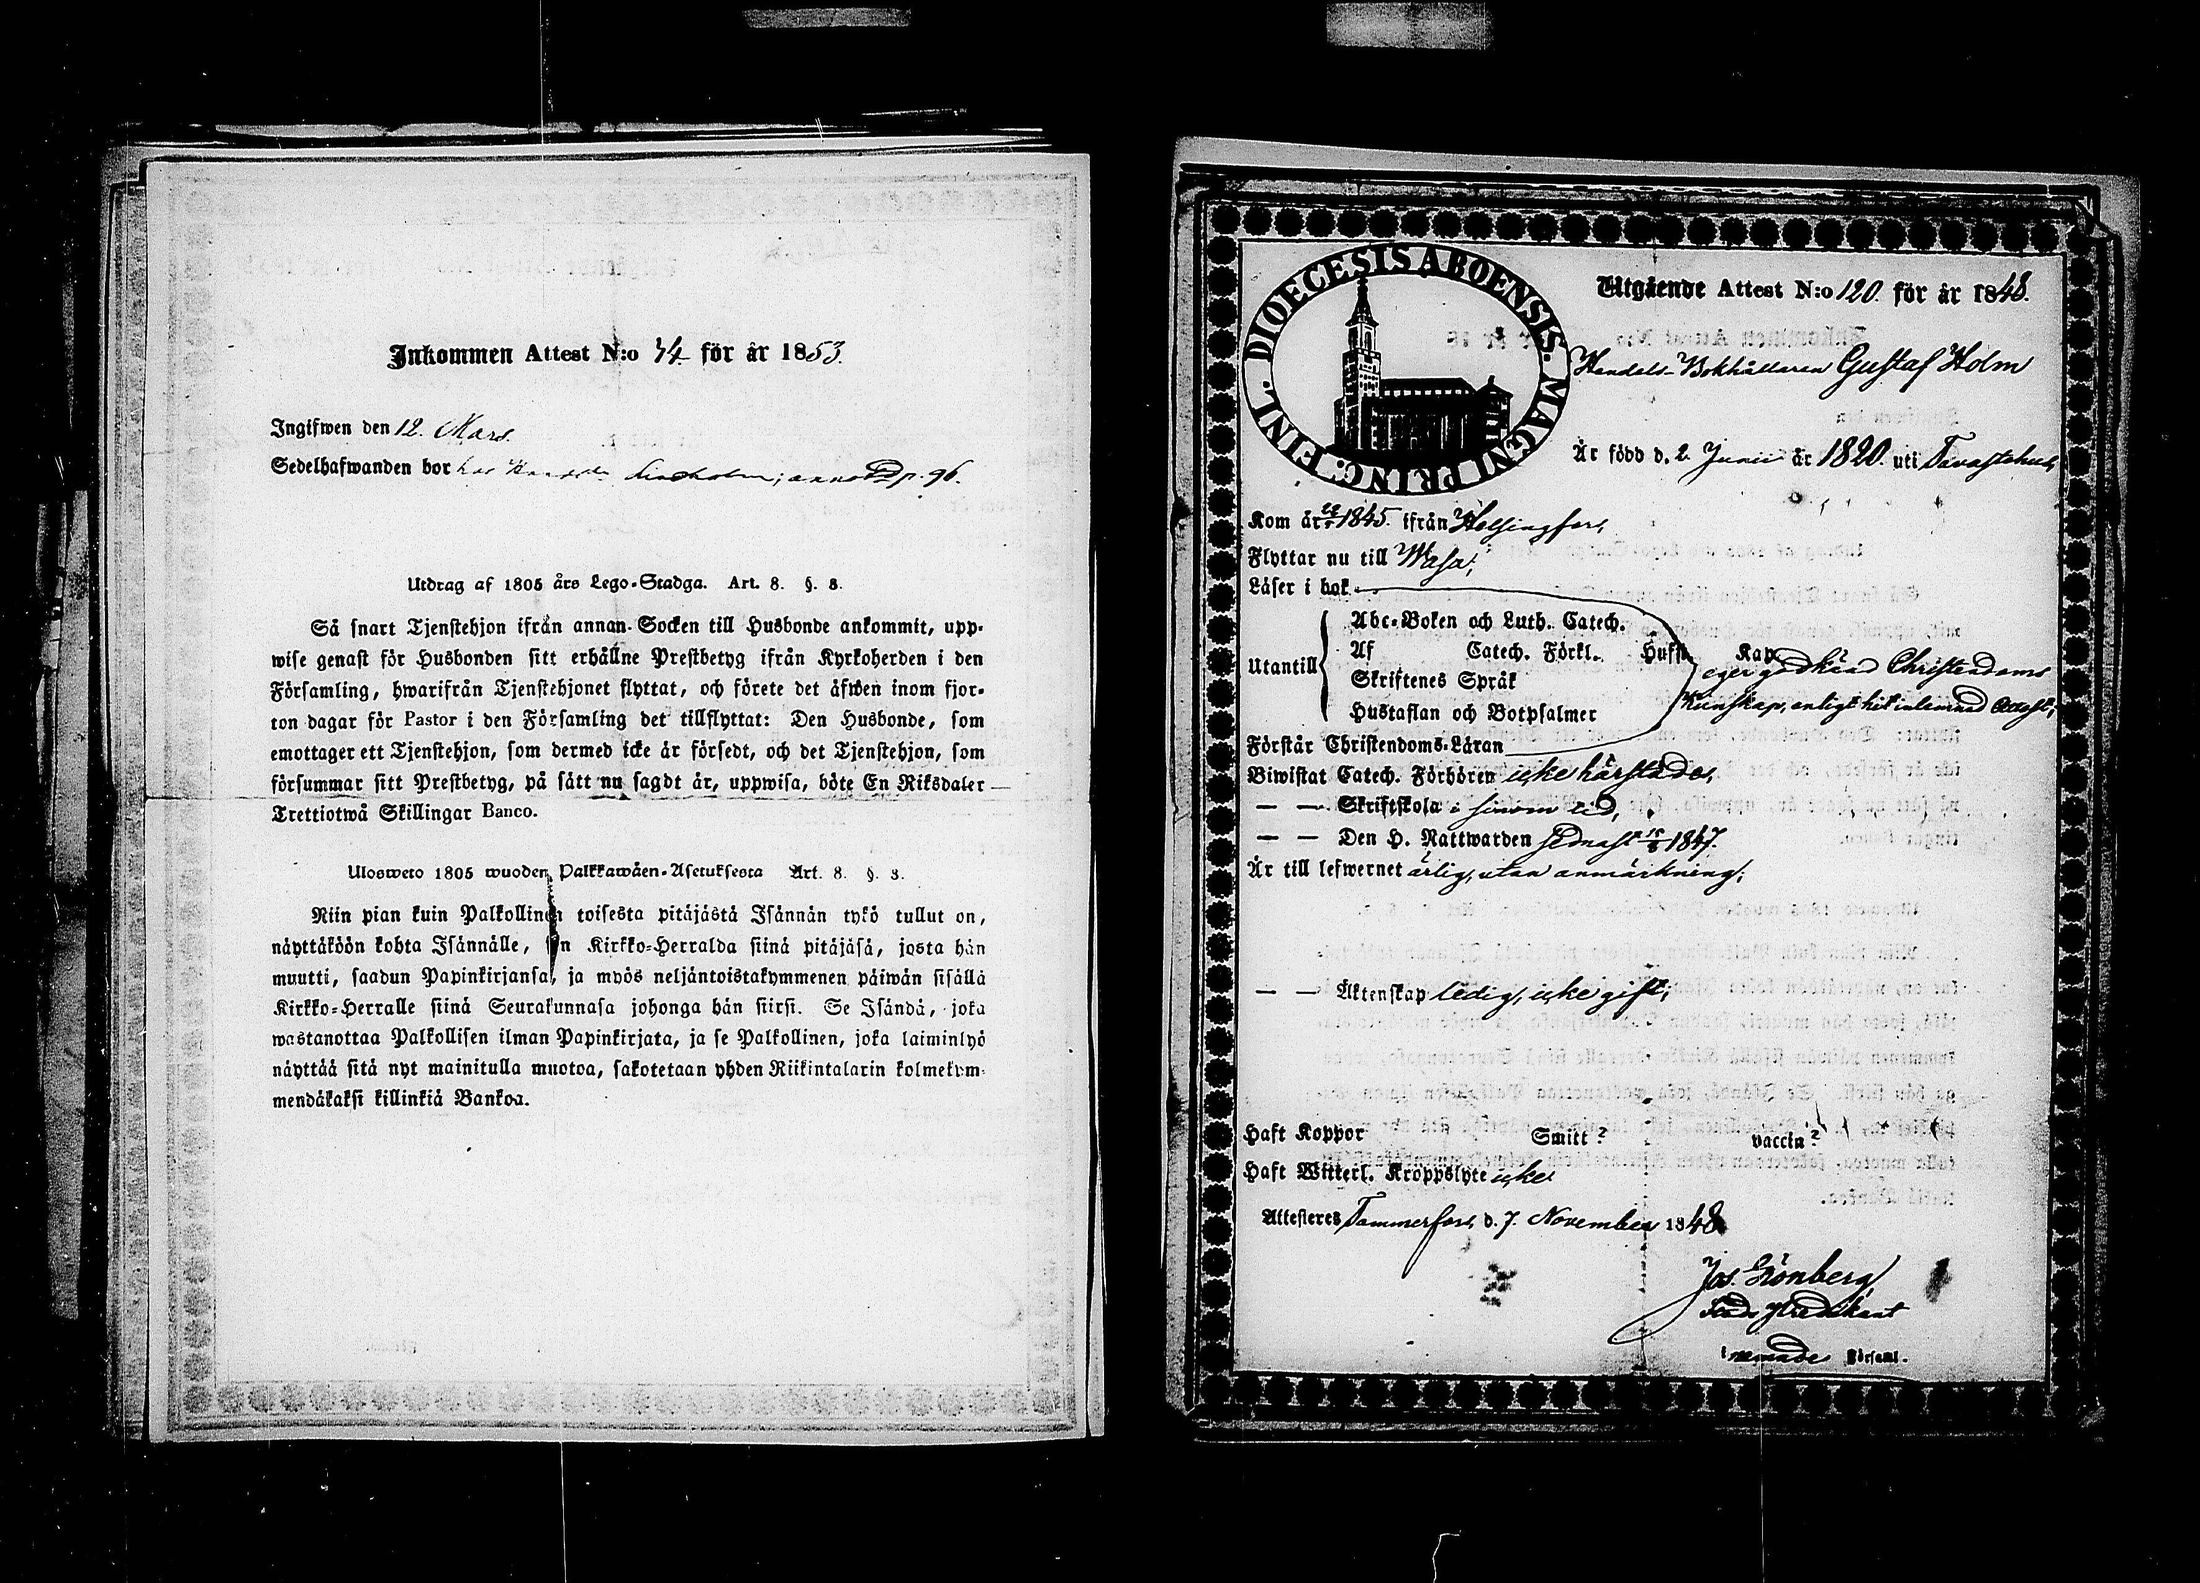 Inkommen Attest N:o 74. för år 1853.
Ingifwen den 12. Mars.
Sedelhafwanden bor hos p. 96.
Utdrag af 1805 års Lego-Stadga. Art. 8. §. 8.
Så snart Tjenstehjon ifrån annan Socken till Husbonde ankommit, upp-
wise genast för Husbonden sitt erhållne Prestbetyg ifrån Kyrkoherden i den
Församling, hwarifrån Tjenstehjonet flyttat, och förete det äfwen inom fjor-
ton dagar för Pastor i den Församling det tillflyttat: Den Husbonde, som
emottager ett Tjenstehjon, som dermed icke är försedt, och det Tjenstehjon, som
försummar sitt Prestbetyg, på sätt nu sagdt är, uppwisa, böte En Riksdaler
Trettiotwå Skillingar Banco.
Ulosweto 1805 wuoden Palkkawäen-Asetuksesta Art. 8. §. 8.
Niin pian kuin Palkollinen toisesta pitäjästä Isännän tykö tullut on,
näyttäköön kohta Isännälle, sen Kirkko-Herralda siinä pitäjäsä, josta hän
muutti, saadun Papinkirjansa, ja myös neljäntoistakymmenen päiwän sisällä
Kirkko-Herralle siinä Seurakunnasa johonga hän siirsi. Se Isändä, joka
wastanottaa Palkollisen ilman Papinkirjata, ja se Palkollinen, joka laiminlyö
näyttää sitä nyt mainitulla muotoa, sakotetaan yhden Riikintalarin kolmekym-
mendäkaksi killinkiä Bankoa.
DIOECESIS ABOENSIS. MAGNI PRINC. FINL.
Utgående Attest N:o 120. för år 1848.
Handels-Bokhållaren Gustaf Holm
Är född d. 2. Junii år 1820. uti Tavastehus,
Kom år 1845. ifrån Helsingfors,
Flyttar nu till Wasa,
Läser i bok
Utantill
Abc-Boken och Luth. Catech.
Af Catech. Förkl. Hufst. Kap.
Skriftenes Språk
Hustaflan och Botpsalmer
eger godkänd Christendoms
kunskap, enligt hit inlemnad Attest,
Förstår Christendoms-Läran
Biwistat Catech. Förhören icke härstädes,
— — Skriftskola i sinom tid,
— — Den H. Nattwarden sednast 1847.
Är till lefwernet ärlig, utan anmärkning;
— — Äktenskap ledig, icke gift,
Haft Koppor Smitt? vaccin?
Haft Witterl. Kroppslyte icke
Attesteres Tammerfors, d. 7. November 1848
Jos. Grönberg
Stads Predikant
i nemnde Församl.